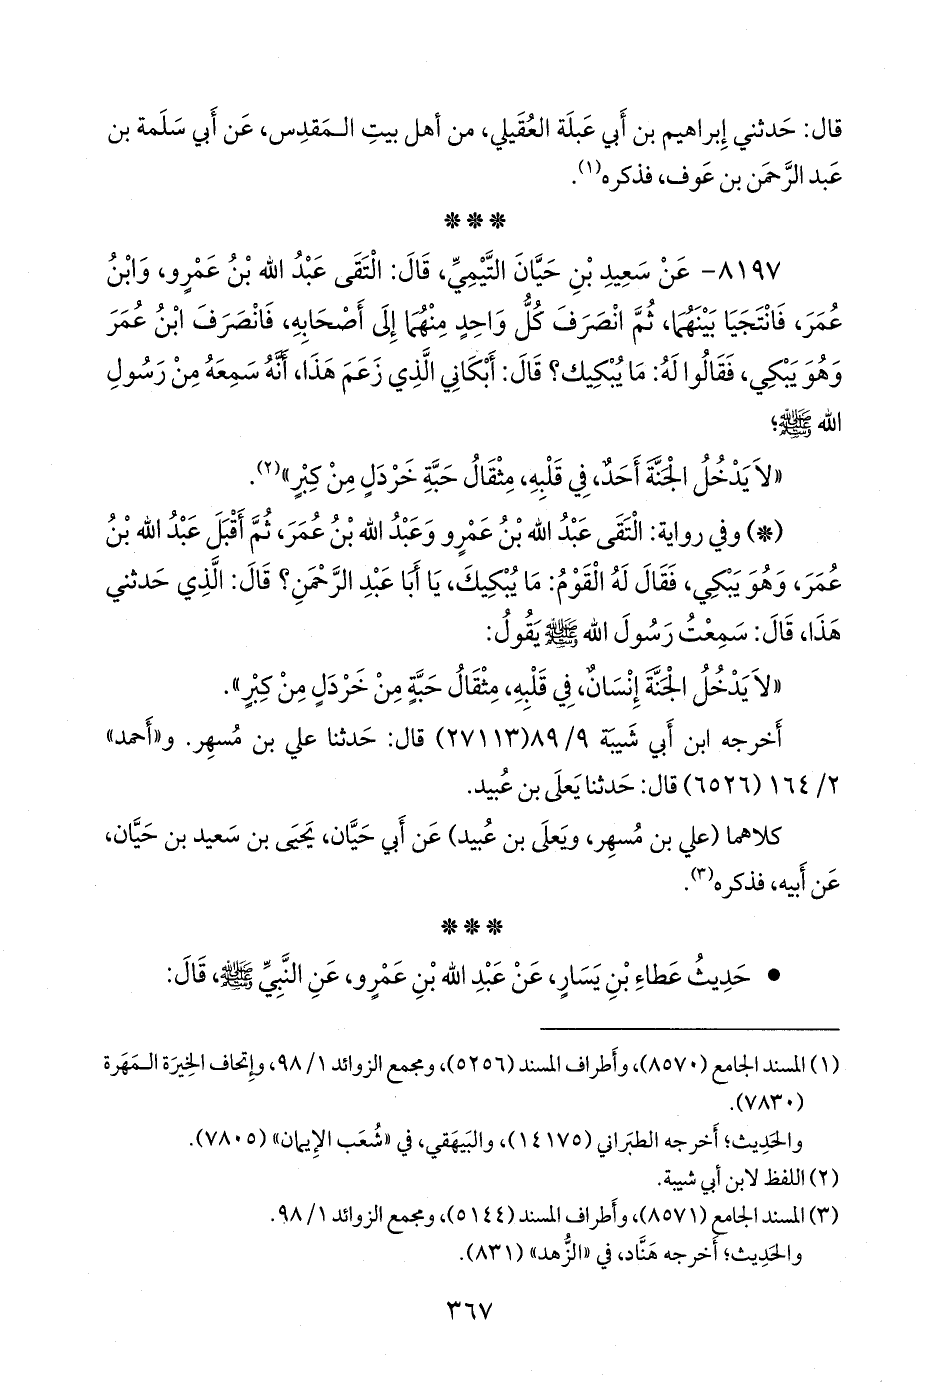 قال: حَدثني إِبراهيم بن أَبي عَبلَة العُقَيلي، من أهل بيتِ الـمَقدِس، عَن أَبي سَلَمة بن
عَبد الرَّحمَن بن عَوف، فذكره(١).
* * *
٨١٩٧- عَنْ سَعِيدِ بْنِ حَيَّانَ التَّيْمِيِّ، قَالَ: الْتَقَى عَبْدُ الله بْنُ عَمْرٍو، وَابْنُ
عُمَرَ، فَانْتَجَيَا بَيْنَهُمَا، ثُمَّ انْصَرَفَ كُلُّ وَاحِدٍ مِنْهُمَا إِلَى أَصْحَابِهِ، فَانْصَرَفَ ابْنُ عُمَرَ
وَهُوَ يَبْكِي، فَقَالُوا لَهُ: مَا يُبْكِيك؟ قَالَ: أَبْكَانِي الَّذِي زَعَمَ هَذَا، أَنَّهُ سَمِعَهُ مِنْ رَسُولِ
الله ﷺ؛
«لاَ يَدْخُلُ الْجَنَّةَ أَحَدٌ، فِي قَلْبِهِ، مِثْقَالُ حَبَّةِ خَرْدَلٍ مِنْ كِبْرٍ»(٢).
(*) وفي رواية: الْتَقَى عَبْدُ الله بْنُ عَمْرٍو وَعَبْدُ الله بْنُ عُمَرَ، ثُمَّ أَقْبَلَ عَبْدُ الله بْنُ
عُمَرَ، وَهُوَ يَبْكِي، فَقَالَ لَهُ الْقَوْمُ: مَا يُبْكِيكَ، يَا أَبَا عَبْدِ الرَّحْمَنِ؟ قَالَ: الَّذِي حَدثني
هَذَا، قَالَ: سَمِعْتُ رَسُولَ الله ﷺ يَقُولُ:
«لاَ يَدْخُلُ الْجَنَّةَ إِنْسَانٌ، فِي قَلْبِهِ، مِثْقَالُ حَبَّةٍ مِنْ خَرْدَلٍ مِنْ كِبْرٍ».
أَخرجه ابن أَبي شَيبَة ٩/ ٨٩(٢٧١١٣) قال: حَدثنا علي بن مُسهِر. و«أَحمد»
٢/ ١٦٤ (٦٥٢٦) قال: حَدثنا يَعلَى بن عُبيد.
كلاهما (علي بن مُسهِر، ويَعلَى بن عُبيد) عَن أَبي حَيَّان، يَحيَى بن سَعيد بن حَيَّان،
عَن أَبيه، فذكره(٣).
* * *
• حَدِيثُ عَطَاءِ بْنِ يَسَارٍ، عَنْ عَبْدِ الله بْنِ عَمْرٍو، عَنِ النَّبِيِّ ﷺ، قَالَ:
(١) المسند الجامع (٨٥٧٠)، وأَطراف المسند (٥٢٥٦)، ومجمع الزوائد ١/ ٩٨، وإِتحاف الخِيرَة الـمَهَرة
(٧٨٣٠).
والحَدِيث؛ أَخرجه الطبَراني (١٤١٧٥)، والبَيهَقي، في «شُعَب الإِيمان» (٧٨٠٥).
(٢) اللفظ لابن أبي شيبة.
(٣) المسند الجامع (٨٥٧١)، وأَطراف المسند (٥١٤٤)، ومجمع الزوائد ١/ ٩٨.
والحَدِيث؛ أَخرجه هَنَّاد، في «الزُّهد» (٨٣١).
٣٦٧